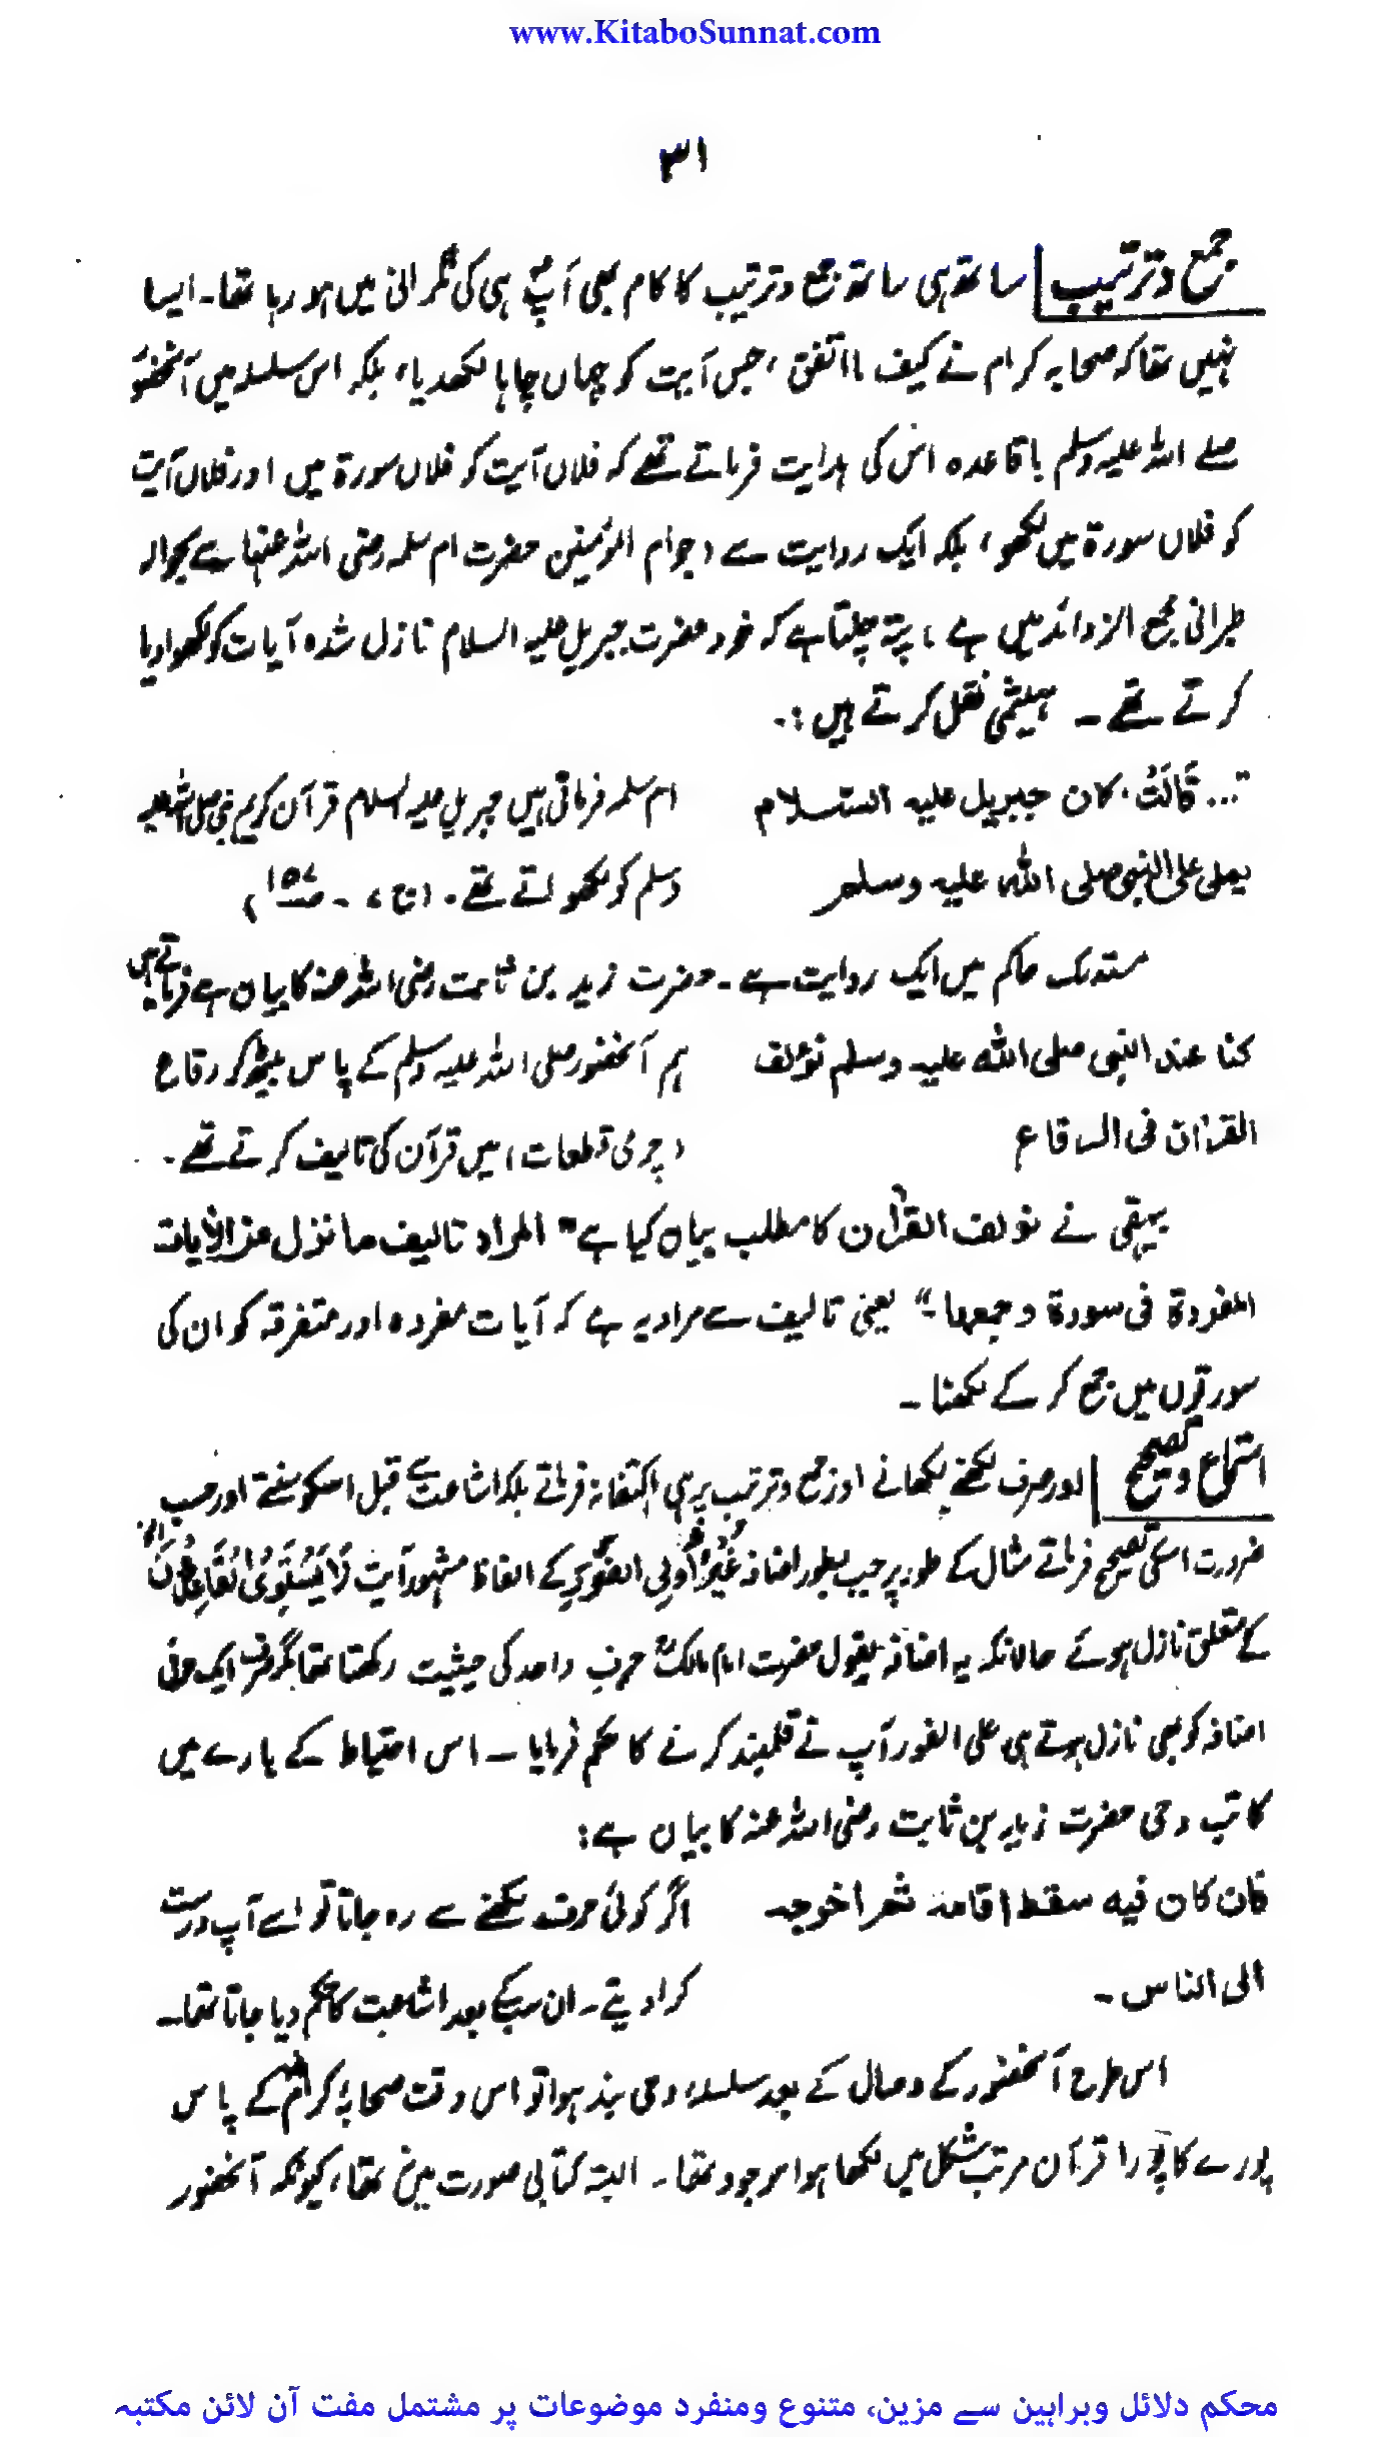 www.KitaboSunnat.com
۳۱
جمع و ترتیب ساتھ ہی ساتھ جمع و ترتیب کا کام بھی آپؐ ہی کی نگرانی میں ہو رہا تھا۔ ایسا
نہیں تھا کہ صحابہ کرام نے کیف ما اتفق، جس آیت کو جہاں چاہا لکھدیا، بلکہ اس سلسلہ میں آنحضور
صلے اللہ علیہ وسلم باقاعدہ اس کی ہدایت فرماتے تھے کہ فلاں آیت کو فلاں سورۃ میں اور فلاں آیت
کو فلاں سورۃ میں لکھو، بلکہ ایک روایت سے (جو ام المؤمنین حضرت ام سلمہ رضی اللہ عنہا سے بحوالہ
طبرانی مجمع الزوائد میں ہے، پتہ چلتا ہے کہ خود حضرت جبریل علیہ السلام نازل شدہ آیات کو لکھوا دیا
کرتے تھے۔ ہیثمی نقل کرتے ہیں:۔
"... قَالَتْ، کان جبریل علیہ السّلام ام سلمہ فرماتی ہیں جبریل علیہ السلام قرآن کریم نبی صلی اللہ علیہ
یملی علی النبی صلی اللہ علیہ وسلم وسلم کو لکھواتے تھے۔ (ج ۷ ۔ ص ۱۵۷)
مستدرک حاکم میں ایک روایت ہے۔ حضرت زید بن ثابت رضی اللہ عنہ کا بیان ہے فرماتے ہیں
کنا عند النبی صلی اللہ علیہ وسلم نؤلف ہم آنحضور صلی اللہ علیہ وسلم کے پاس بیٹھ کر رقاع
القرآن فی الرقاع (چرمی قطعات) میں قرآن کی تالیف کرتے تھے۔
بیہقی نے نولف القرآن کا مطلب بیان کیا ہے "المراد تالیف ما نزل من الآیات
المفردۃ فی سورۃ وجمعہا۔" یعنی تالیف سے مراد یہ ہے کہ آیات مفردہ اور متفرقہ کو ان کی
سورتوں میں جمع کر کے لکھنا۔
استماع و تصحیح اور صرف لکھنے لکھانے اور جمع و ترتیب پر ہی اکتفا نہ فرماتے بلکہ اشاعت سے قبل اسکو سنتے اور حسب
ضرورت اسکی تصحیح فرماتے مثال کے طور پر جب بطور اضافہ غَیْرُ اُولِی الضَّرَرِ کے الفاظ مشہور آیت لَا یَسْتَوِی الْقَاعِدُوْنَ الخ
کے متعلق نازل ہوئے حالانکہ یہ اضافہ بقول حضرت امام مالکؒ حرف واحد کی حیثیت رکھتا تھا مگر صرف ایک حرفی
اضافہ کو بھی نازل ہوتے ہی علی الفور آپ نے قلمبند کرنے کا حکم فرمایا۔ اس احتیاط کے بارے میں
کاتب وحی حضرت زید بن ثابت رضی اللہ عنہ کا بیان ہے:
فان کان فیہ سقط اقامہ ثم اخرجہ اگر کوئی حرف لکھنے سے رہ جاتا تو اسے آپ درست
الی الناس۔ کرا دیتے۔ ان سب کے بعد اشاعت کا حکم دیا جاتا تھا۔
اس طرح آنحضور کے وصال کے بعد سلسلہ وحی بند ہوا تو اس وقت صحابہ کرامؓ کے پاس
پورے کا پورا قرآن مرتب شکل میں لکھا ہوا موجود تھا۔ البتہ کتابی صورت میں نہ تھا، کیونکہ آنحضور
محکم دلائل وبراہین سے مزین، متنوع ومنفرد موضوعات پر مشتمل مفت آن لائن مکتبہ